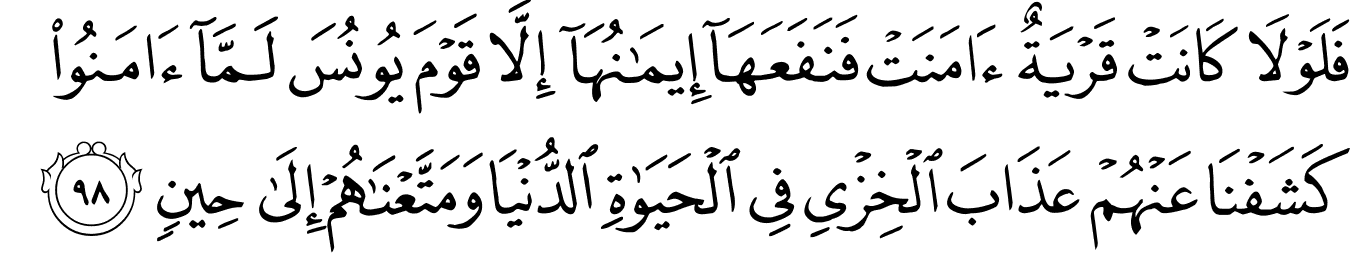 فَلَوۡلَا كَانَتۡ قَرۡيَةٌ ءَامَنَتۡ فَنَفَعَهَآ إِيمَٰنُهَآ إِلَّا قَوۡمَ يُونُسَ لَمَّآ ءَامَنُواْ
كَشَفۡنَا عَنۡهُمۡ عَذَابَ ٱلۡخِزۡيِ فِي ٱلۡحَيَوٰةِ ٱلدُّنۡيَا وَمَتَّعۡنَٰهُمۡ إِلَىٰ حِينٖ ٩٨